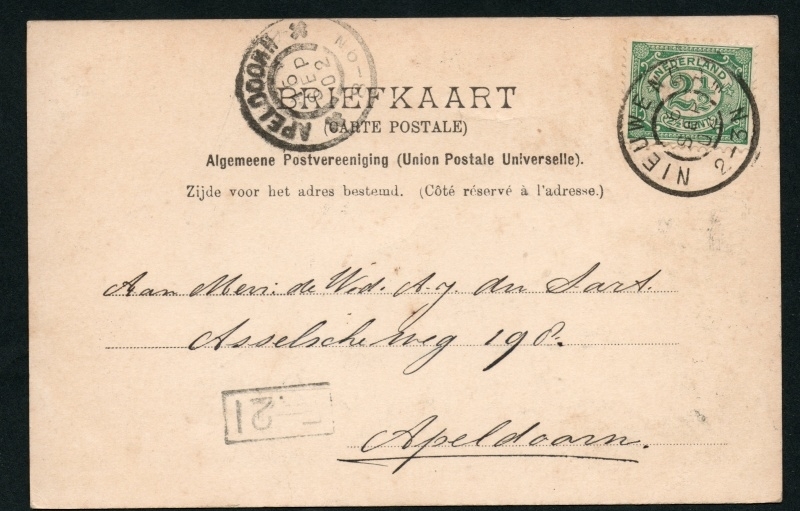 APELDOORN
15 SEP 02
NEDERLAND
2½
NIEUWE
2-3N
BRIEFKAART
(CARTE POSTALE)
Algemeene Postvereeniging (Union Postale Universelle).
Zijde voor het adres bestemd. (Côté réservé à l'adresse.)
Aan Mevr. de Wed. A. J. du Sart.
Asselscheweg 198.
Apeldoorn.
21